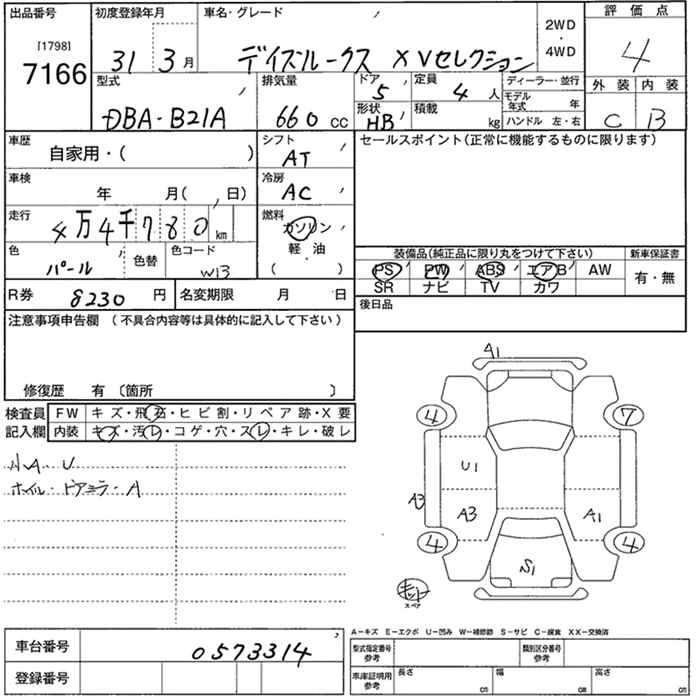 出品番号
[1798]
7166
初度登録年月
31 3月
車名・グレード
デイズルークス XVセレクション
2WD
・
4WD
評価点
4
型式
DBA-B21A
排気量
660 cc
ドア
5
定員
4 人
形状
HB
積載
kg
ディーラー・並行
モデル年式 年
ハンドル 左・右
外装 内装
C B
車歴
自家用・( )
シフト
AT
セールスポイント(正常に機能するものに限ります)
車検
年 月( , 日)
冷房
AC
走行
4万4千780km
燃料
ガソリン
軽・油
( )
色
パール
色替
色コード
W13
装備品(純正品に限り丸をつけて下さい)
新車保証書
PS PW ABS エアB AW
SR ナビ TV カワ
有・無
R券
8230 円
名変期限 月 日
後日品
注意事項申告欄 (不具合内容等は具体的に記入して下さい)
修復歴 有 〔箇所 〕
検査員
記入欄
FW キズ・飛石・ヒビ割・リペア跡・X要
内装 キズ・汚レ・コゲ・穴・スレ・キレ・破レ
小A U
ホイル・ドアミラーA
A1
4 7
U1
A3 A3 A1
4 4
S1
キット
スペア
A-キズ E-エクボ U-凹み W-補修跡 S-サビ C-腐食 XX-交換済
車台番号
0573314
登録番号
型式指定番号
参考
類別区分番号
参考
車庫証明用
参考
長さ cm 幅 cm 高さ cm